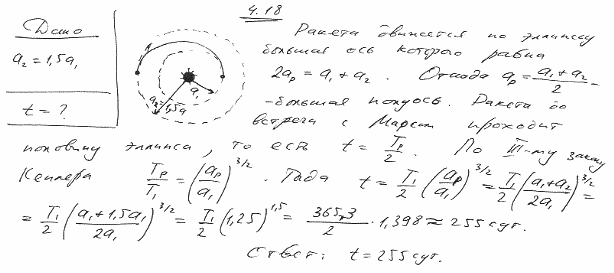 4.18
Дано
a₂ = 1,5a₁
t = ?
a₁
a₂=1,5a₁
Ракета движется по эллипсу
большая ось которого равна
2aₚ = a₁ + a₂ . Отсюда aₚ = (a₁ + a₂)/2 -
- большая полуось. Ракета до
встречи с Марсом проходит
половину эллипса, то есть t = Tₚ/2 . По III-му закону
Кеплера Tₚ/T₁ = (aₚ/a₁)^3/2 . Тогда t = T₁/2 (aₚ/a₁)^3/2 = T₁/2 ((a₁+a₂)/2a₁)^3/2 =
= T₁/2 ((a₁+1,5a₁)/2a₁)^3/2 = T₁/2 (1,25)^1,5 = 365,3/2 · 1,398 ≈ 255 сут.
Ответ: t = 255 сут.